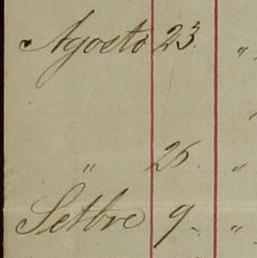 Agosto 23. "
" 26. "
Setbre 9. "